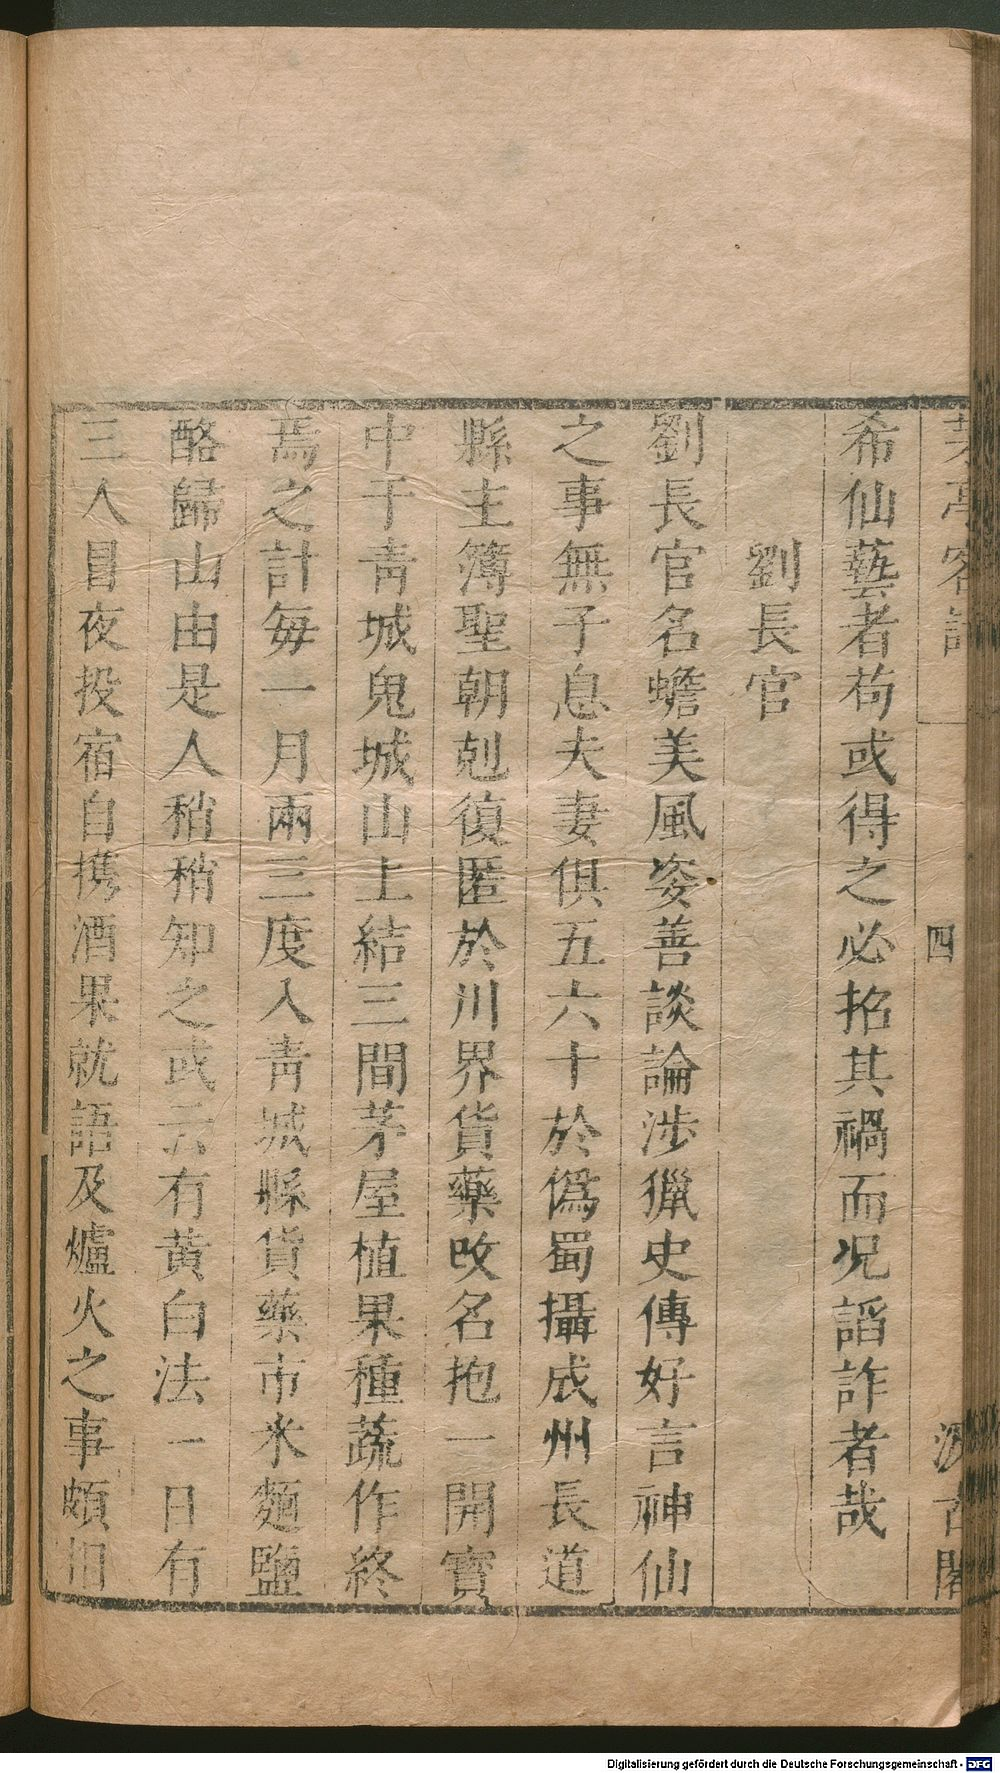 茅亭客話
四
汲古閣
希仙藝者苟或得之必招其禍而况謟詐者哉
劉長官
劉長官名蟾美風姿善談論涉獵史傳好言神仙
之事無子息夫妻俱五六十於僞蜀攝成州長道
縣主簿聖朝剋復匿於川界貨藥改名抱一開寳
中于青城鬼城山上結三間茅屋植果種蔬作終
焉之計每一月兩三度入青城縣貨藥市米麵鹽
酪歸山由是人稍稍知之或云有黄白法一日有
三人冒夜投宿自携酒果就語及爐火之事頗相
Digitalisierung gefördert durch die Deutsche Forschungsgemeinschaft - DFG